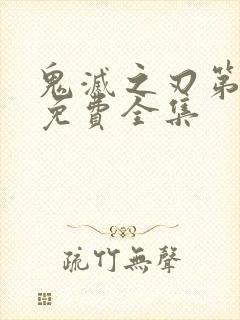 鬼滅之刃第
免費全集
疏竹無聲